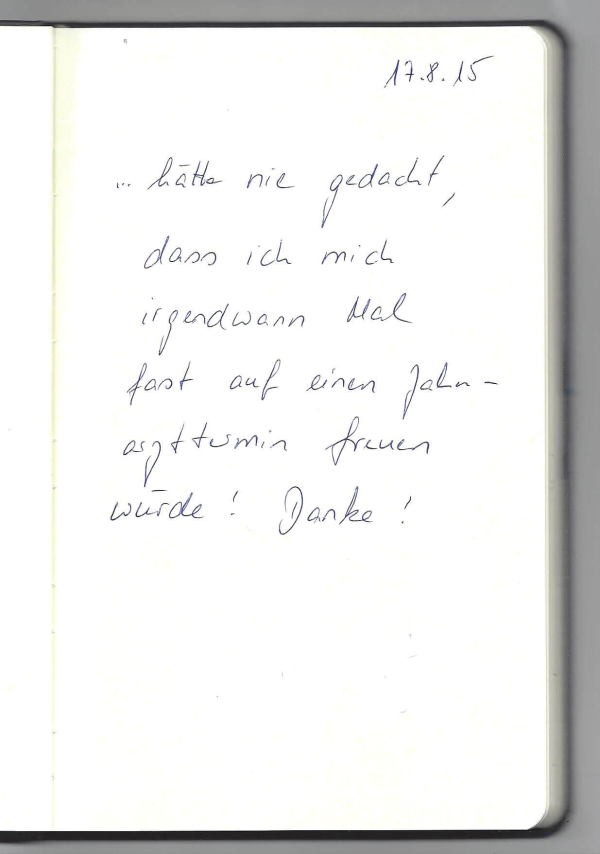 17.8.15
... hätte nie gedacht,
dass ich mich
irgendwann Mal
fast auf einen Zahn-
arzttermin freuen
würde! Danke!